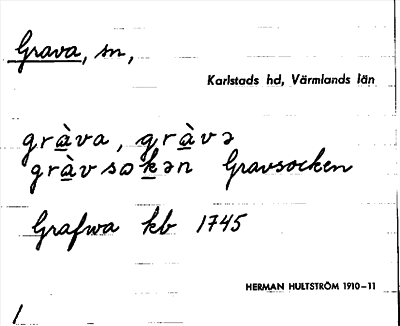 Grava, sn,
Karlstads hd, Värmlands län
gràva, gràvə
gràvsokən Gravsocken
Grafwa kb 1745
HERMAN HULTSTRÖM 1910–11